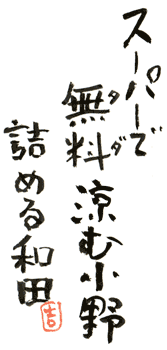 スーパーで
無料涼む小野
タダ
詰める和田
吉